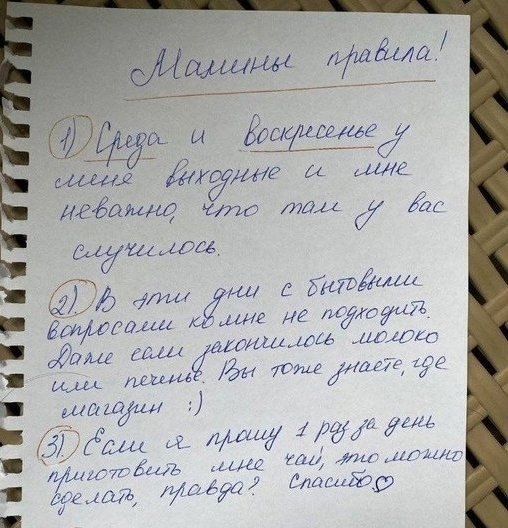 Мамины правила!
1) Среда и воскресенье у
меня выходные и мне
неважно, что там у вас
случилось.
2) В эти дни с бытовыми
вопросами ко мне не подходить.
Даже если закончилось молоко
или печенье. Вы тоже знаете, где
магазин :)
3) Если я прошу 1 раз за день
приготовить мне чай, это можно
сделать, правда? Спасибо♡